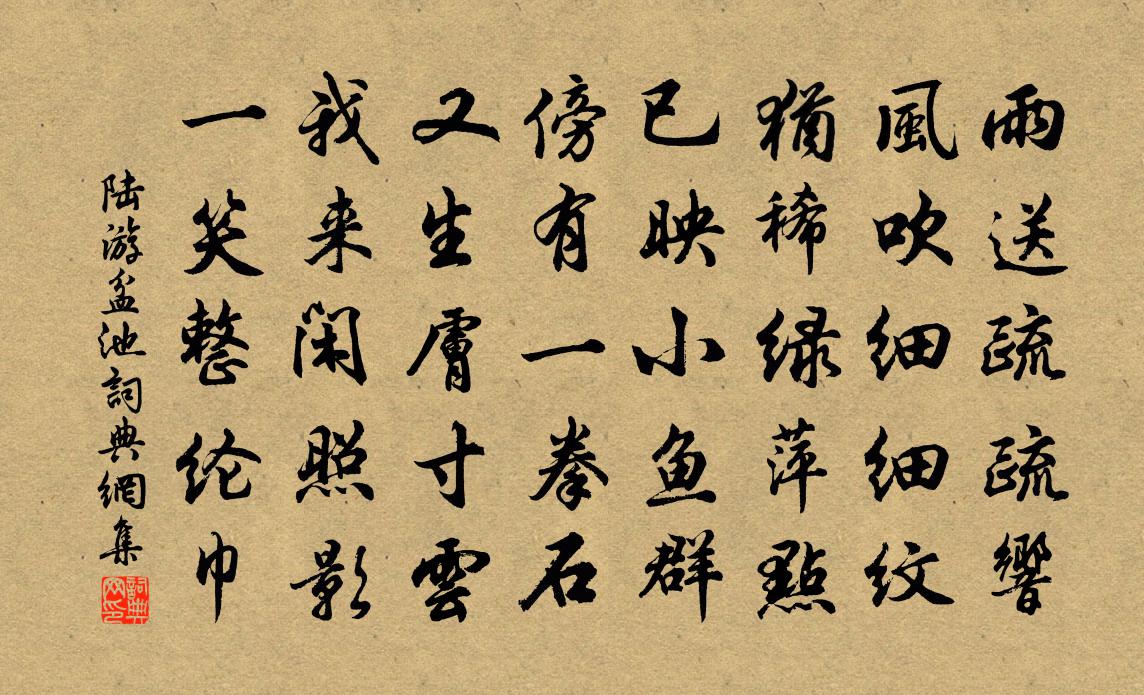 雨送疏疏響
風吹细细紋
猶稀绿萍點
已映小鱼群
傍有一拳石
又生膚寸雲
我来闲照影
一笑整纶巾
陆游盆池詞典網集
詞典网印